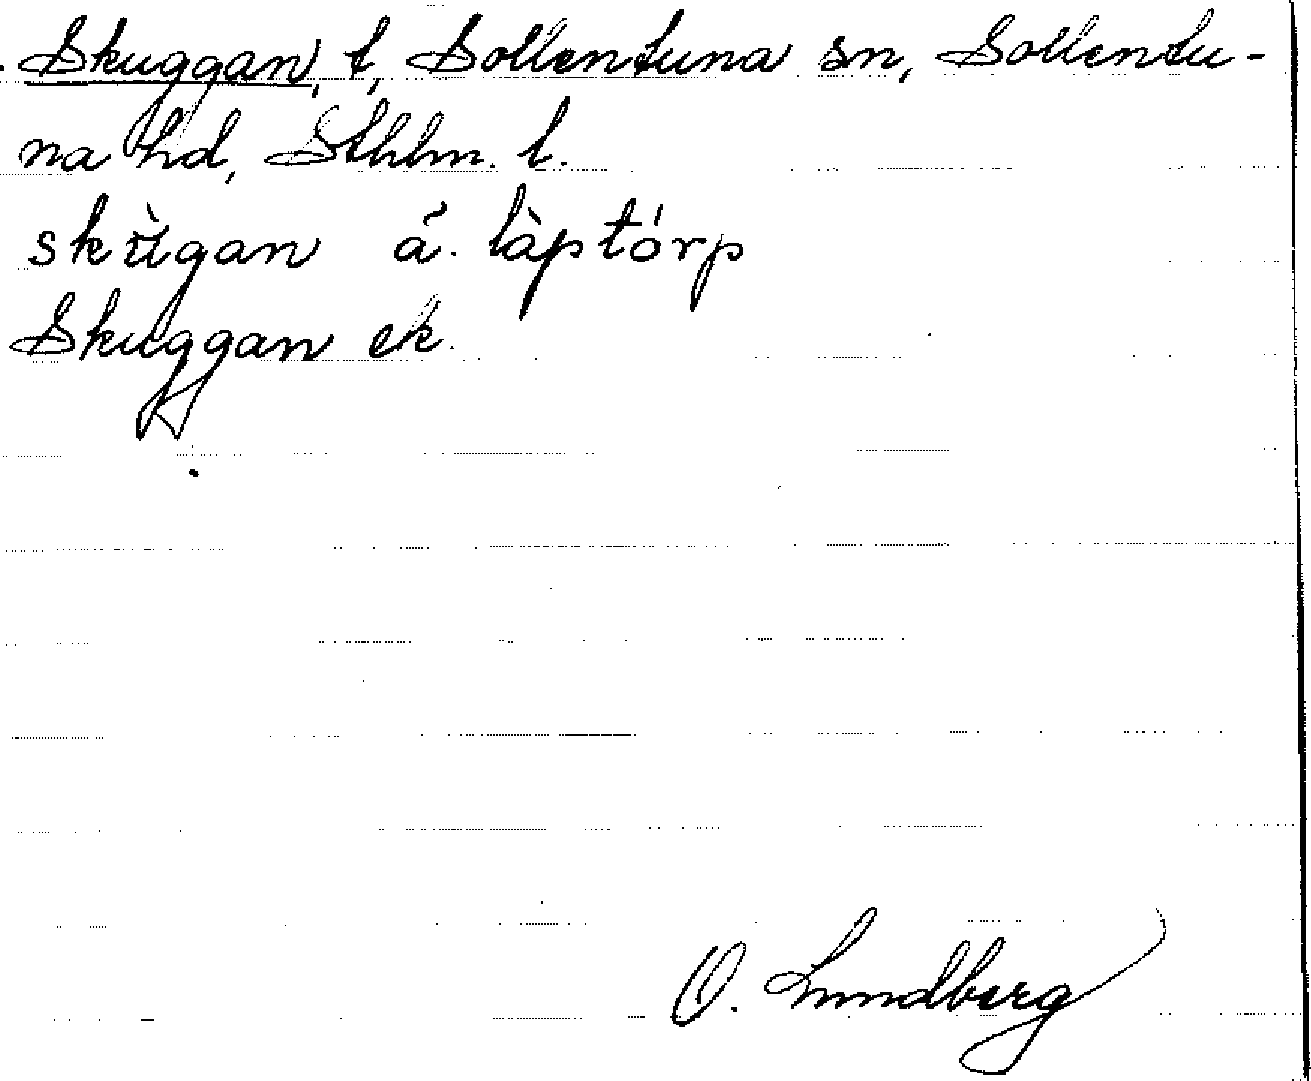 Skuggan, t, Sollentuna sn, Sollentu-
na hd, Sthlm. l.
skùgan á. làptórp
Skuggan ek.
O. Lundberg